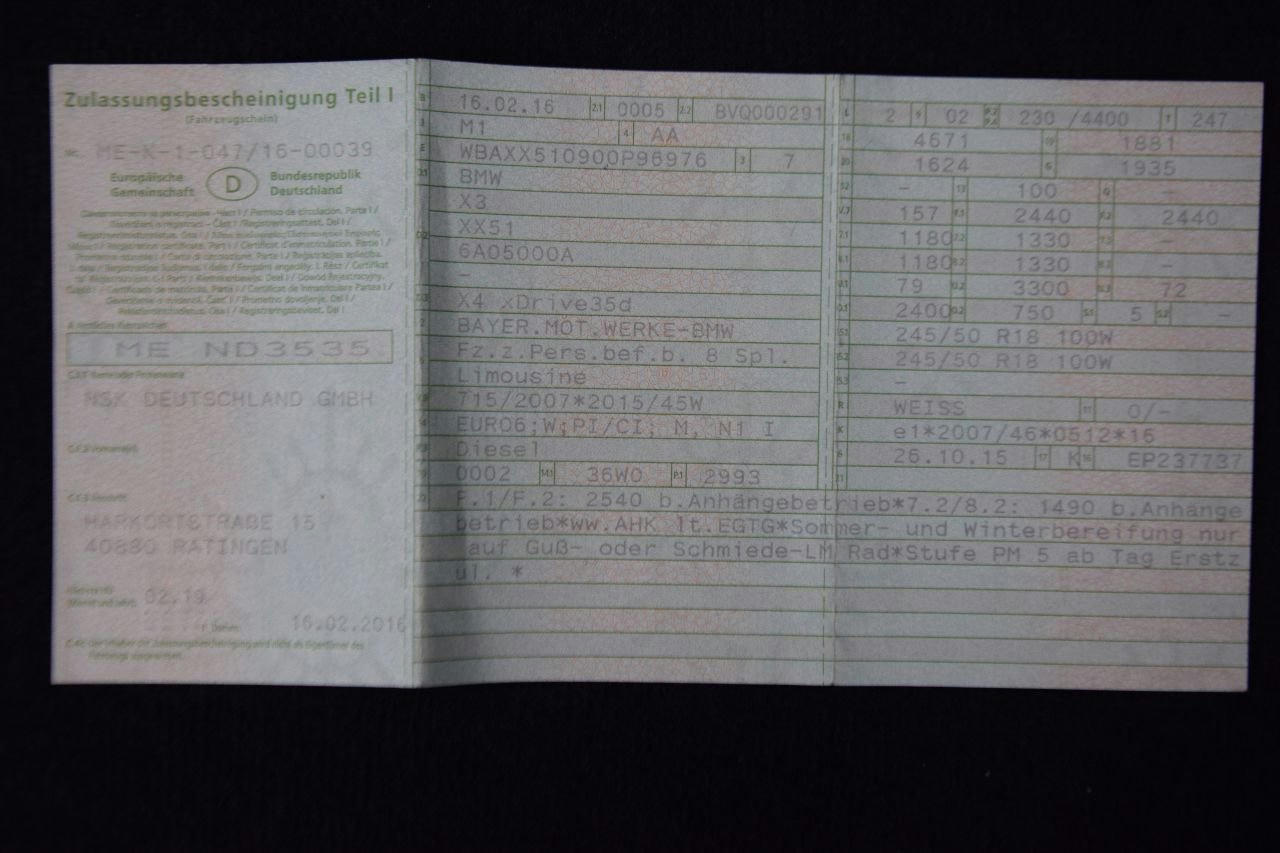 Zulassungsbescheinigung Teil I
(Fahrzeugschein)
Nr. ME-K-1-047/16-00039
Europäische Gemeinschaft
D
Bundesrepublik Deutschland
ME ND3535
NSK DEUTSCHLAND GMBH
HARKORTSTRAßE 15
40880 RATINGEN
02.19
16.02.2016
16.02.16 2.1 0005 2.2 BVQ000291
M1 4 AA
WBAXX510900P96976 3 7
BMW
X3
XX51
6A05000A
–
X4 xDrive35d
BAYER.MOT.WERKE-BMW
Fz.z.Pers.bef.b. 8 Spl.
Limousine
715/2007*2015/45W
EURO6;W;PI/CI; M, N1 I
Diesel
0002 14.1 36W0 P.1 2993
L 2 9 02 230 /4400 T 247
18 4671 19 1881
20 1624 G 1935
12 – 13 100 Q –
V.7 157 F.1 2440 F.2 2440
7.1 1180 7.2 1330 7.3 –
8.1 1180 8.2 1330 8.3 –
U.1 79 U.2 3300 U.3 72
O.1 2400 O.2 750 S.1 5 S.2 –
15.1 245/50 R18 100W
15.2 245/50 R18 100W
15.3 –
R WEISS 11 0/–
K e1*2007/46*0512*15
6 26.10.15 17 K 16 EP237737
21
F.1/F.2: 2540 b.Anhängebetrieb*7.2/8.2: 1490 b.Anhänge
betrieb*ww.AHK lt.EGTG*Sommer- und Winterbereifung nur
auf Guß- oder Schmiede-LM Rad*Stufe PM 5 ab Tag Erstz
ul. *